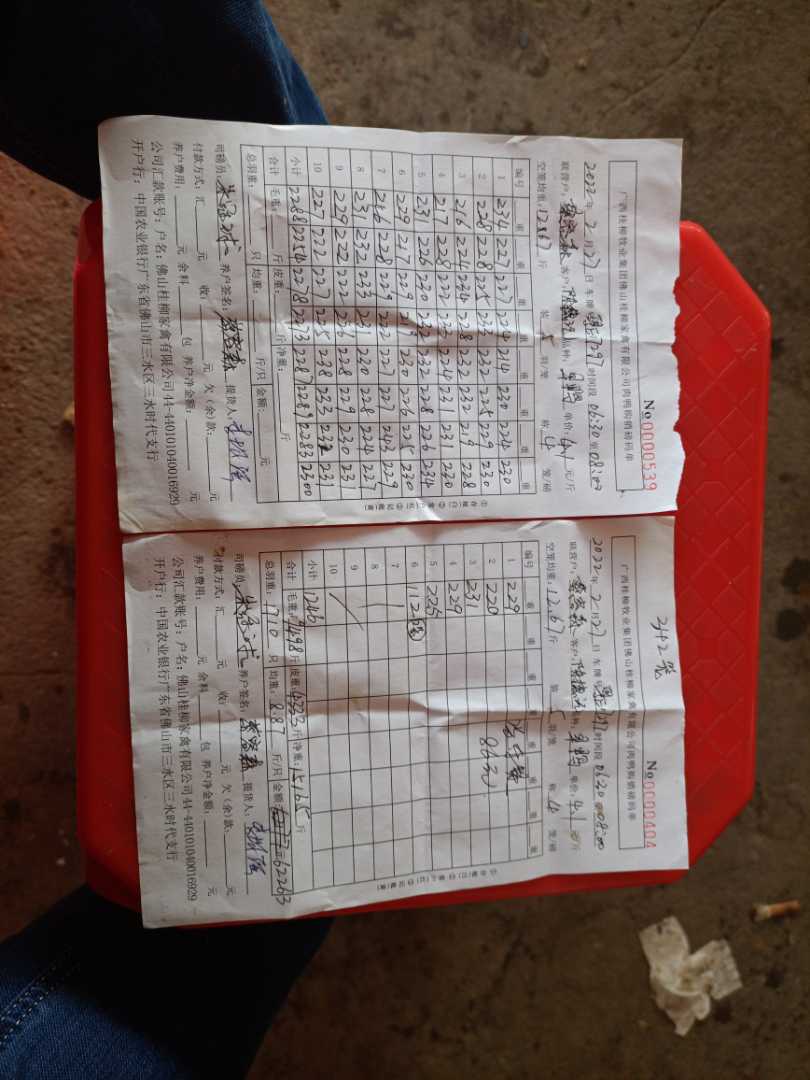 No 0000539
广西桂柳牧业集团佛山桂柳家禽有限公司肉鸭购销磅码单
2022年2月27日 车牌 时间段 06:30至08:00
联营户: 客户: 品种: 单价: 4.1 元/斤
空笼均重: 12.67 斤 装 5 羽/笼 称 4 笼/磅
编号 重 重 重 重 重 重 重 重
1 234 227 227 224 214 230 224 220
2 228 228 225 233 222 225 229 230
3 216 224 234 228 222 232 219 228
4 217 228 222 232 224 231 231 220
5 231 226 230 232 222 228 226 234
6 229 217 229 219 220 226 225 230
7 216 228 229 222 221 227 243 229
8 231 232 233 231 220 228 224 227
9 229 222 222 226 228 229 230 231
10 227 222 227 225 238 233 232 231
小计 2288 2254 2278 2273 2287 2289 2283 2300
合计 毛重: 斤 皮重: 斤 净重: 斤
总羽重: 只 均重: 斤/只 金额: 元
司磅员: 养户签名: 提货人:
付款方式: 汇 元 收: 元 欠(余)款: 元
养户费用: 元 余料 包 养户净金额: 元
公司汇款账号: 户名: 佛山桂柳家禽有限公司 44-440101040016929
开户行: 中国农业银行广东省佛山市三水区三水时代支行
342笼
No 0000404
广西桂柳牧业集团佛山桂柳家禽有限公司肉鸭购销磅码单
2022年2月27日 车牌 时间段 06:30至08:00
联营户: 客户: 品种: 单价: 4.1 元/斤
空笼均重: 12.67 斤 装 5 羽/笼 称 4 笼/磅
编号 重 重 重 重 重 重 重 重
1 229
2 220
3 231
4 229
5 225
6 112
7
8
9
10
小计 1246
合计 毛重: 19498 斤 皮重: 4333 斤 净重: 15165 斤
总羽重: 1710 只 均重: 8.87 斤/只 金额: 62263
司磅员: 养户签名: 提货人:
付款方式: 汇 元 收: 元 欠(余)款: 元
养户费用: 元 余料 包 养户净金额: 元
公司汇款账号: 户名: 佛山桂柳家禽有限公司 44-440101040016929
开户行: 中国农业银行广东省佛山市三水区三水时代支行